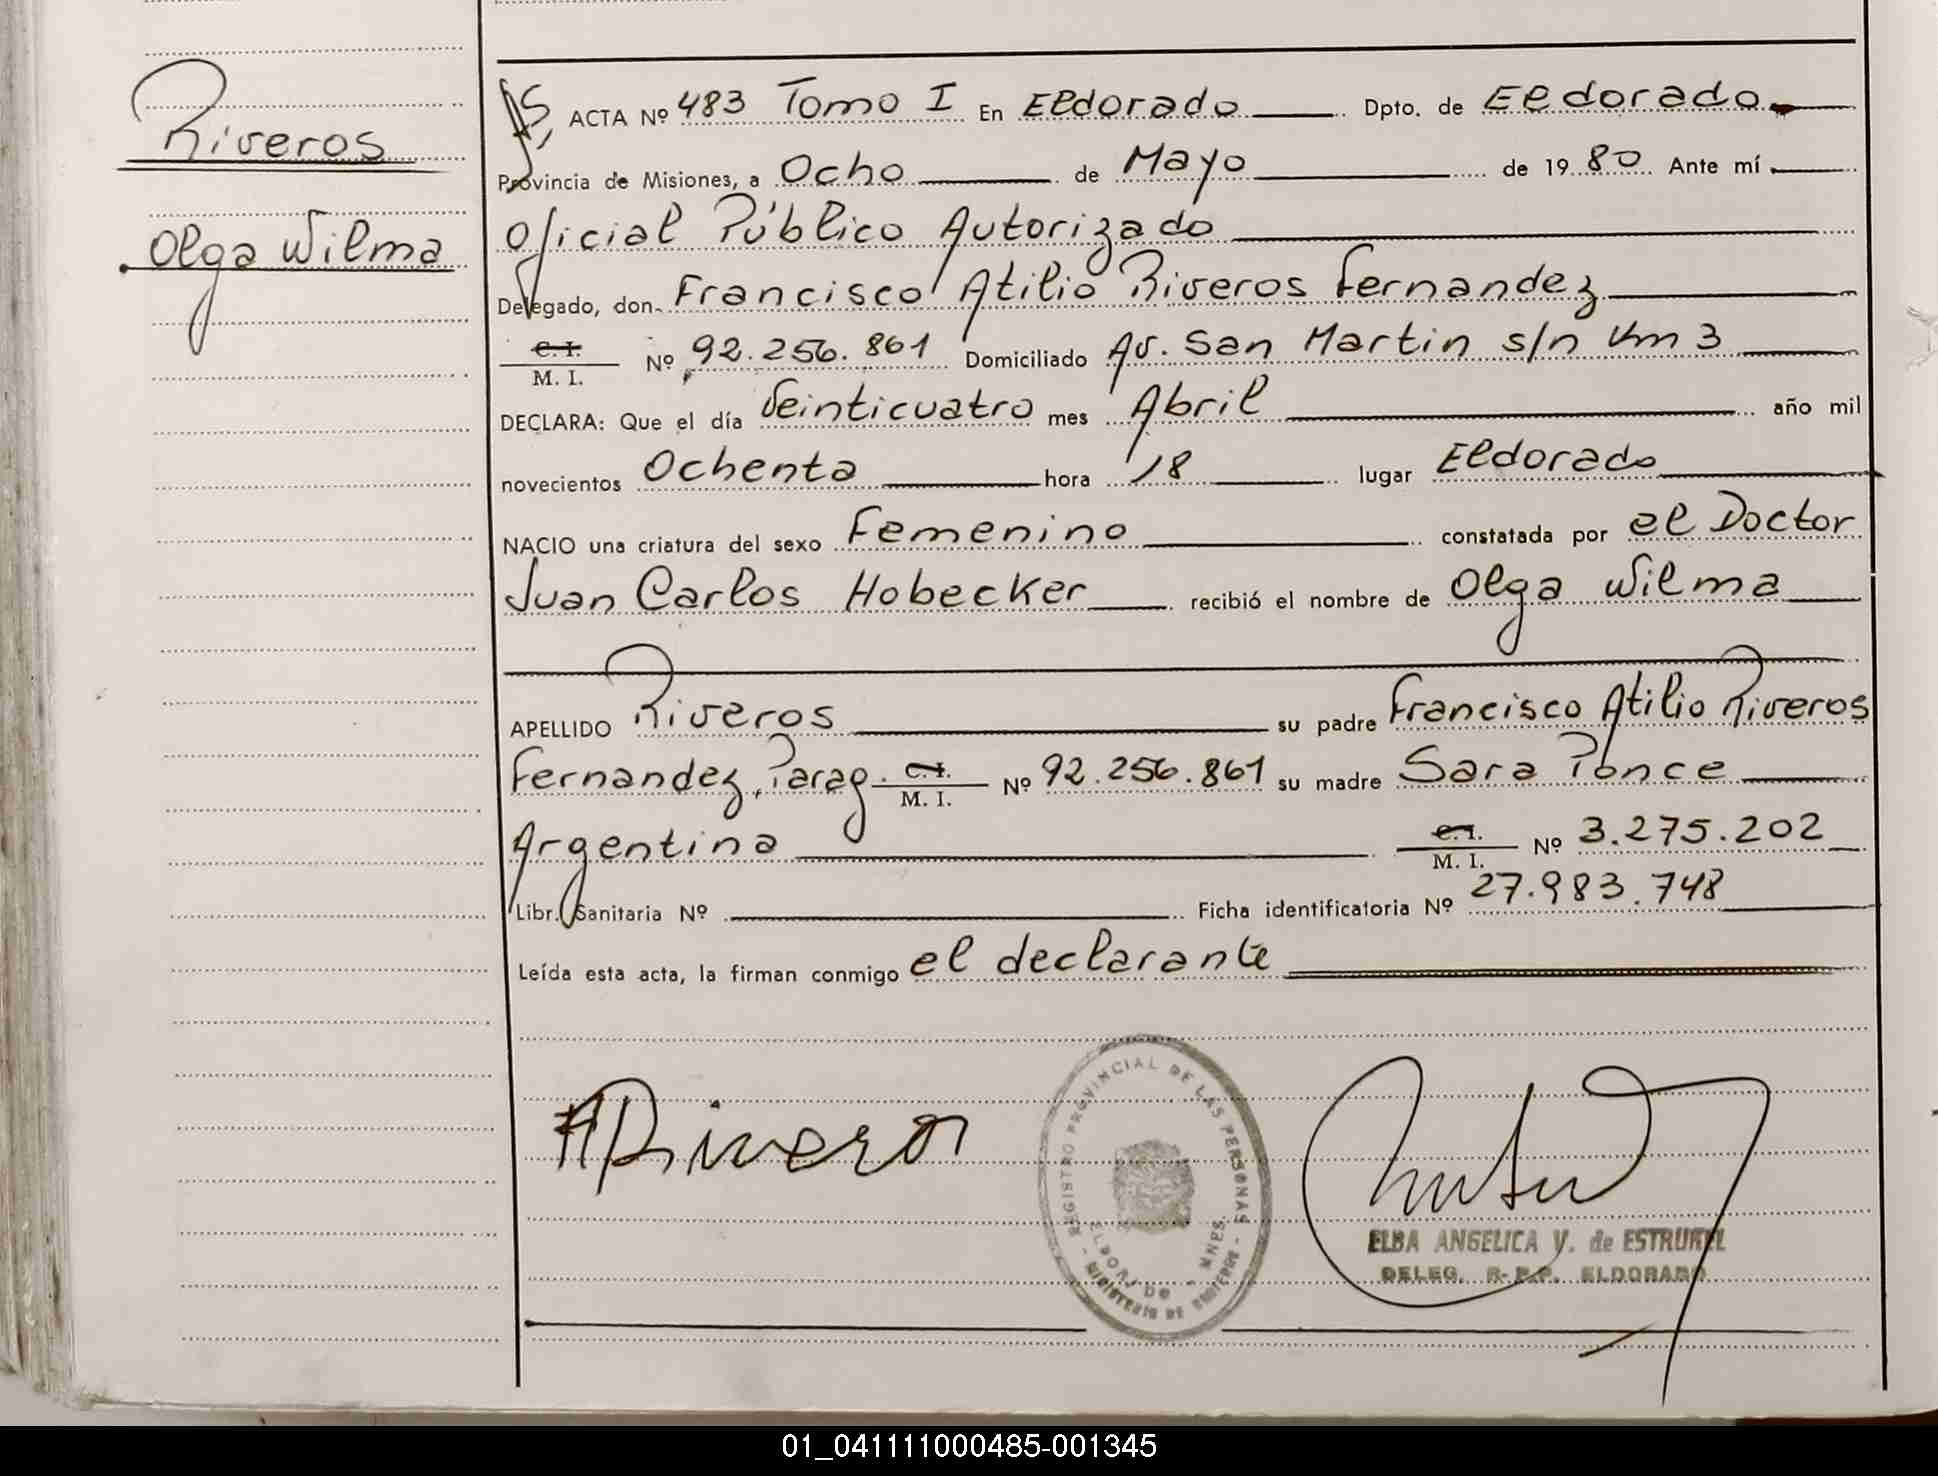 Riveros
Olga Wilma
ACTA Nº 483 Tomo I En Eldorado Dpto. de Eldorado
Provincia de Misiones, a Ocho de Mayo de 1980 Ante mí
Oficial Público Autorizado
Delegado, don Francisco Atilio Riveros Fernandez
C. I. M. I. Nº 92.256.861 Domiciliado Av. San Martin s/n Km 3
DECLARA: Que el día Veinticuatro mes Abril año mil
novecientos Ochenta hora 18 lugar Eldorado
NACIO una criatura del sexo Femenino constatada por el Doctor
Juan Carlos Hobecker recibió el nombre de Olga Wilma
APELLIDO Riveros su padre Francisco Atilio Riveros
Fernandez, Parag. C. I. M. I. Nº 92.256.861 su madre Sara Ponce
Argentina C. I. M. I. Nº 3.275.202
Libr. Sanitaria Nº Ficha identificatoria Nº 27.983.748
Leída esta acta, la firman conmigo el declarante
REGISTRO PROVINCIAL DE LAS PERSONAS - MINISTERIO DE GOBIERNO -
ELDORADO MNES.
ELBA ANGELICA V. de ESTRUKEL
DELEG. R. P. P. ELDORADO
01_041111000485-001345